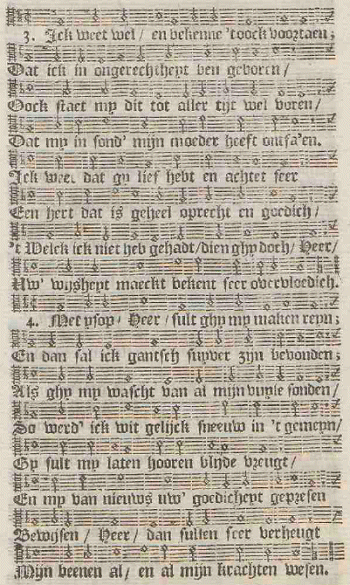 3. Ick weet wel / en bekenne 'toock voortaen;
Dat ick in ongerechtheyt ben geboren /
Oock staet my dit tot aller tijt wel voren /
Dat my in sond' mijn moeder heeft ontfa'en.
Ick weet dat gy lief hebt en achtet seer
Een hert dat is geheel oprecht en goedich /
't Welck ick niet heb gehadt / dien ghy doch / Heer /
Uw' wijsheyt maeckt bekent seer overvloedich.
4. Met ysop / Heer / sult ghy my maken reyn;
En dan sal ick gantsch suyver zijn bevonden;
Als ghy my wascht van al mijn vuyle sonden /
So werd' ick wit gelijck sneeuw in 't gemeyn /
Gy sult my laten hooren blyde vreugt /
En my van nieuws uw' goedicheyt gepresen
Bewijsen / Heer / dan sullen seer verheugt
Mijn beenen al / en al mijn krachten wesen.